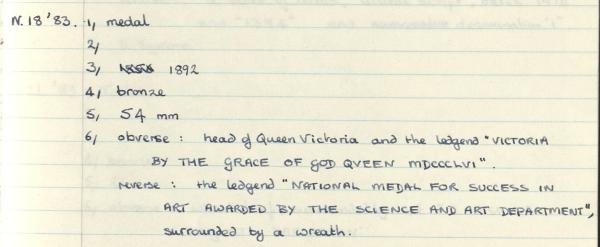 N.18'83. 1, medal
2,
3, 1892
4, bronze
5, 54 mm
6, obverse : head of Queen Victoria and the ledgend "VICTORIA
BY THE GRACE OF GOD QVEEN MDCCCLVI".
reverse : the ledgend "NATIONAL MEDAL FOR SUCCESS IN
ART AWARDED BY THE SCIENCE AND ART DEPARTMENT",
surrounded by a wreath.